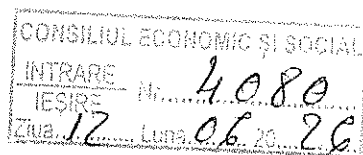 CONSILIUL ECONOMIC ȘI SOCIAL
INTRARE
IEȘIRE Nr. 4080
Ziua 12 Luna 06 20 26